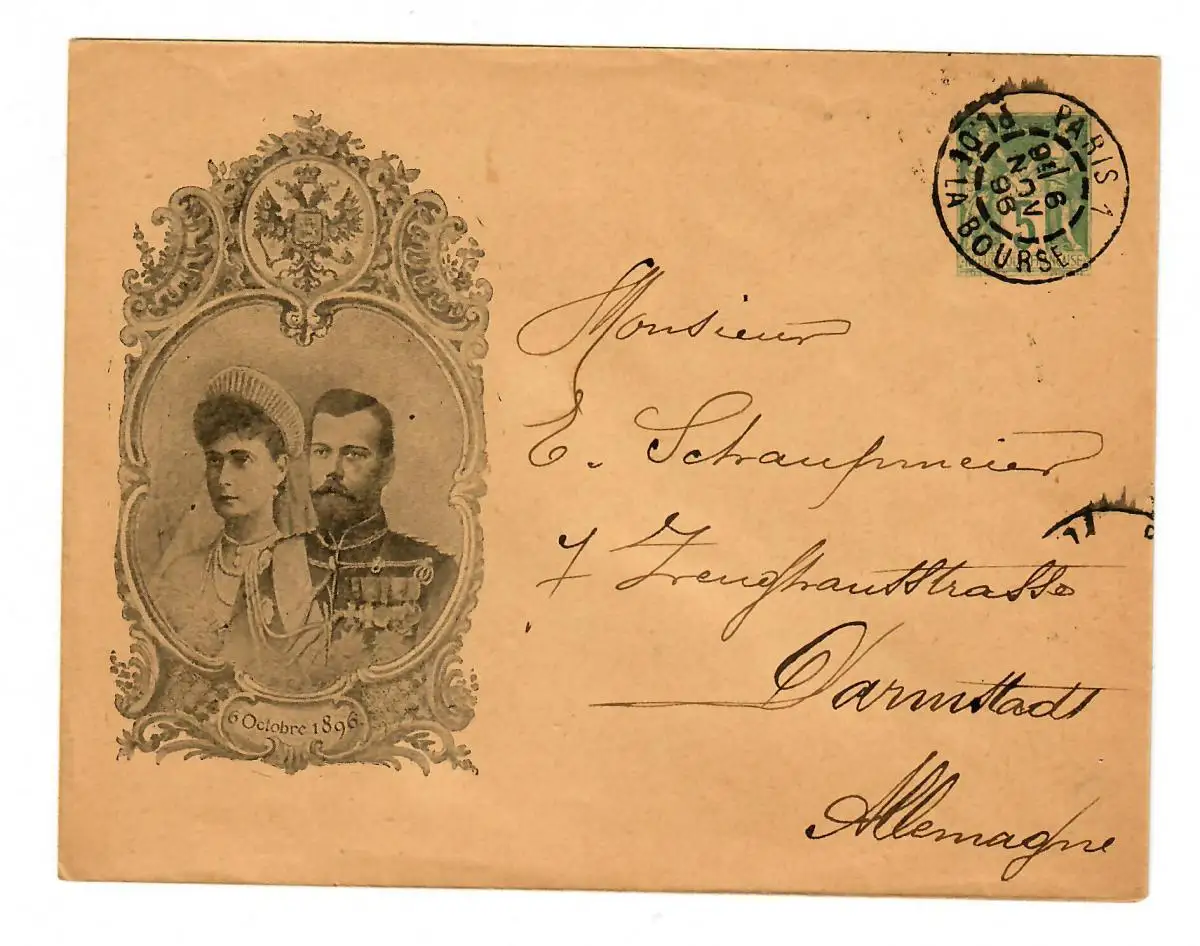 PARIS 1
PL. DE LA BOURSE
6
NOV
96
5
Monsieur
E. Schaupmeier
7 Zeughausstrasse
Darmstadt
Allemagne
6 Octobre 1896